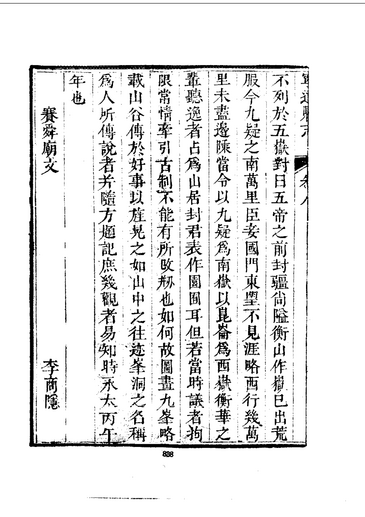 不列於五嶽對日五帝之前封疆尚隘衡山作嶽已出荒
服今九疑之南萬里臣妾國門東望不見涯畧西行幾萬
里未盡邊陲當令以九疑為南嶽以崑崙為西嶽衡華之
輩聽逸者占為山居封君表作園囿耳但若當時議者拘
限常情牽引古制不能有所改剏也如何故圖畫九峯略
載山谷傳於好事以旌異之如山中之往迹峯洞之名稱
為人所傳說者并隨方題記庶幾觀者易知時永太丙午
年也
賽舜廟文
李商隱
838